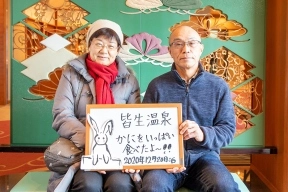 皆生温泉
かにをいっぱい
食べたよー!!
2020年12月20日